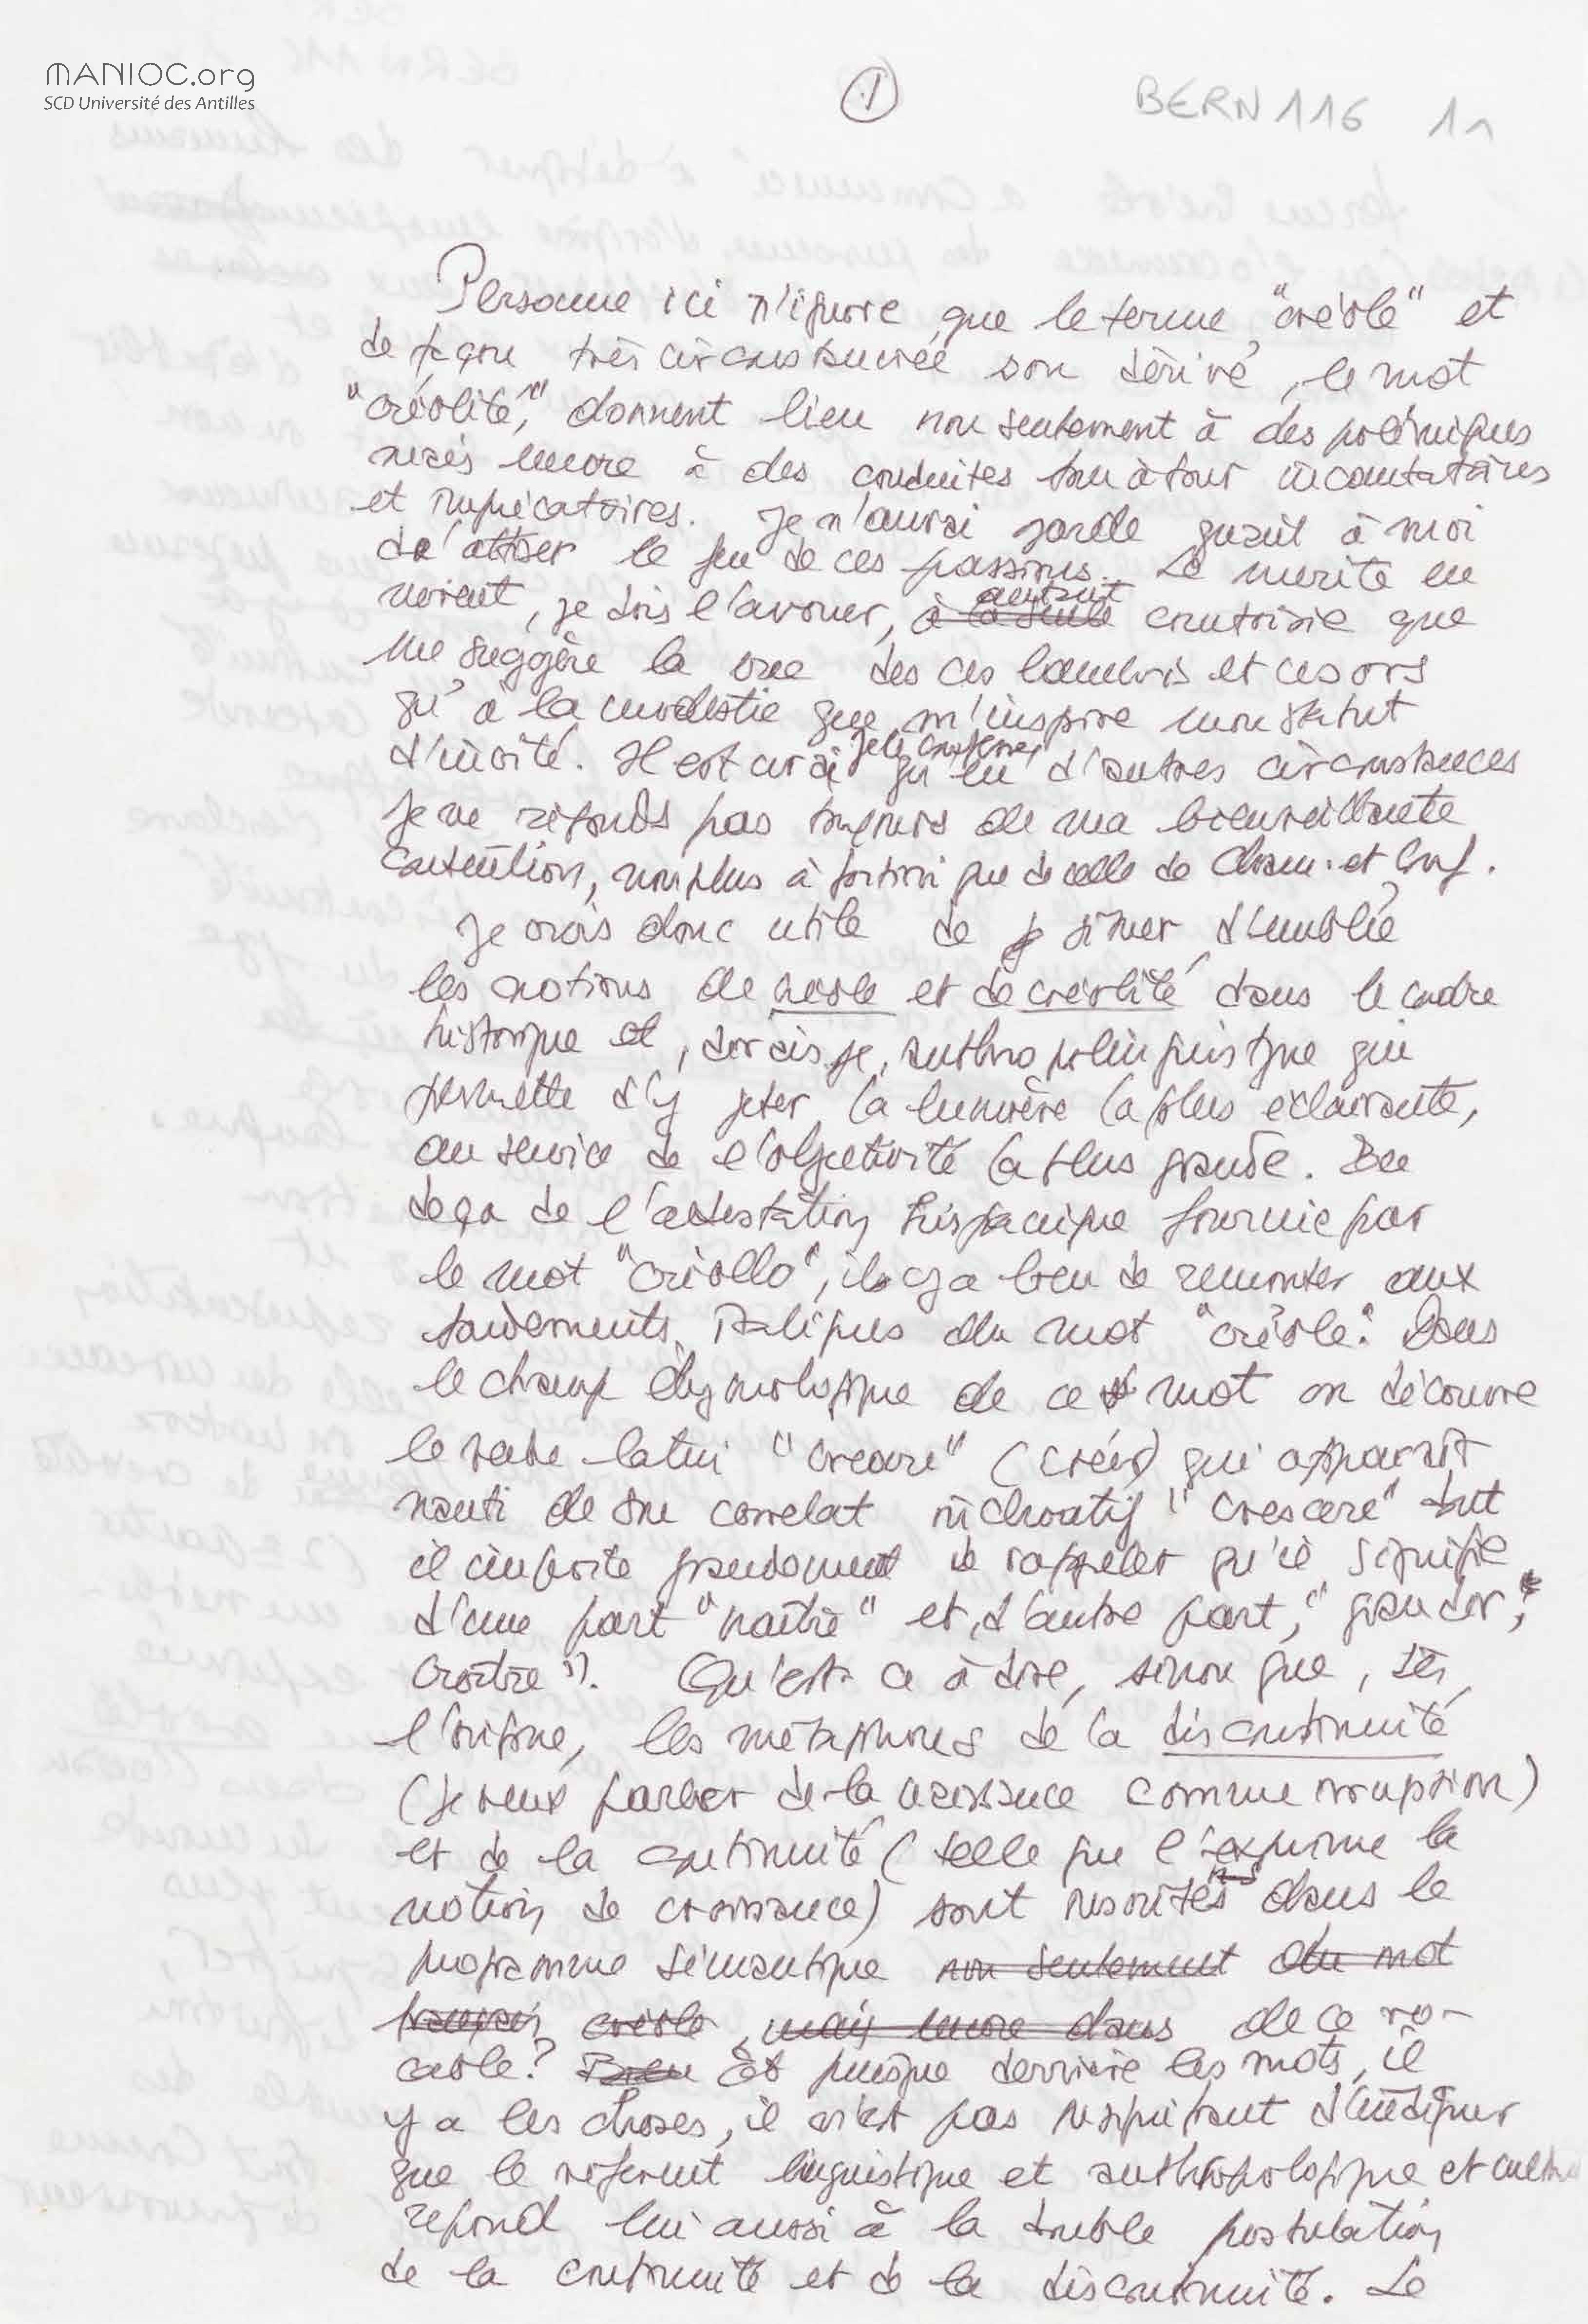 MANIOC.org
SCD Université des Antilles
1
BERN 116 11
Personne ici n'ignore que le terme "créole" et
de façon très circonstanciée son dérivé, le mot
"créolité", donnent lieu non seulement à des polémiques
mais encore à des conduites tour à tour incantatoires
et imprécatoires. Je n'aurai garde quant à moi
d'attiser le feu de ces passions. Le mérite en
revient, je dois l'avouer, à la seule autant courtoisie que
me suggère la vue des ces lambris et ces ors
qu'à la modestie que m'inspire mon statut
d'invité. Il est vrai je le confesse, qu'en d'autres circonstances
je ne réponds pas toujours de ma bienveillante
intention, non plus à fortiori que de celle de Cham. et Conf.
Je crois donc utile de situer d'emblée
les notions de créole et de créolité dans le cadre
historique et, dirais-je, anthropolinguistique qui
permette d'y jeter la lumière la plus éclairante,
au service de l'objectivité la plus grande. En
deça de l'attestation hispanique fournie par
le mot "criollo", il y a lieu de remonter aux
fondements italiques du mot "créole". Dans
le champ étymologique de ce mot on découvre
le verbe latin "creare" (créer) qui apparaît
nanti de son correlat inchoatif "crescere" dont
il importe grandement de rappeler qu'il signifie
d'une part "naître" et, d'autre part, "grandir,
croître". Qu'est-ce à dire, sinon que, dès
l'origine, les métaphores de la discontinuité
(je veux parler de la naissance comme irruption)
et de la continuité (telle que l'exprime la
notion de croissance) sont inscrites dans le
programme sémantique non seulement du mot
français créole, mais encore dans de ce vo-
cable? Bien Et puisque derrière les mots, il
y a les choses, il n'est pas d'indiquer
que le référent linguistique et anthropologique et
répond lui aussi à la double postulation
de la continuité et de la discontinuité. Le